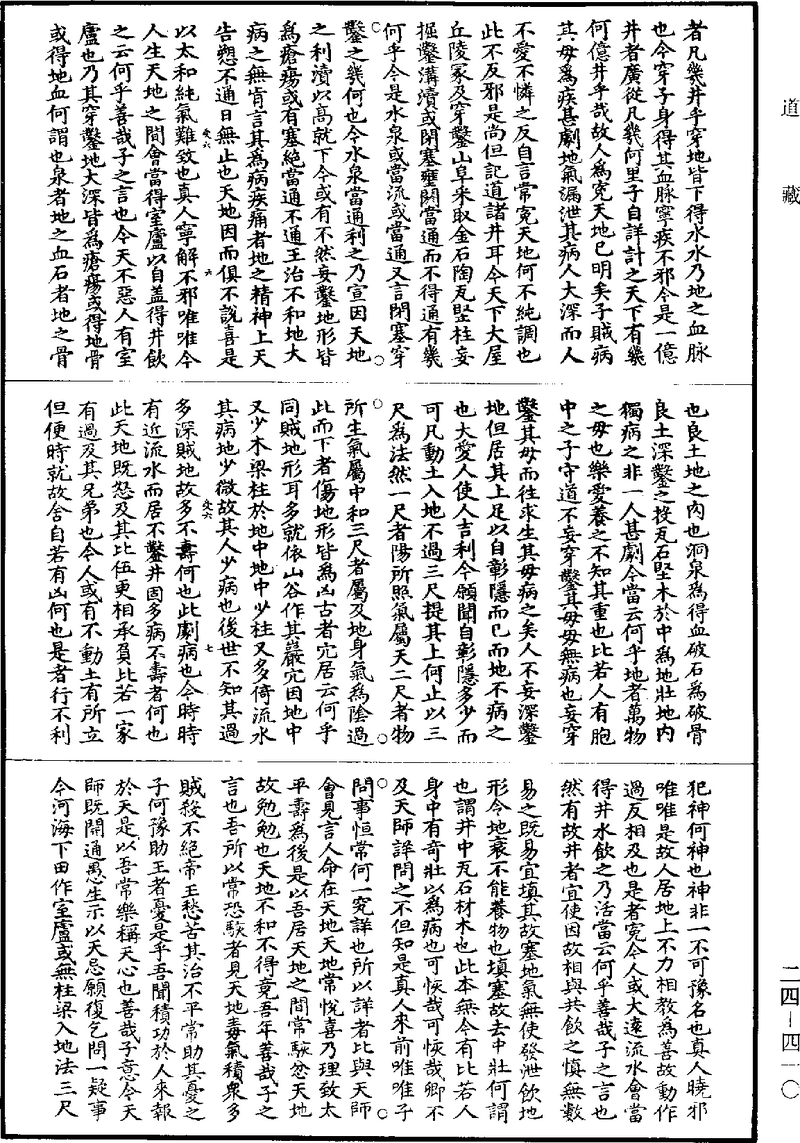 道藏
者凡幾井乎穿地皆下得水水乃地之血脉
也今穿子身得其血脉寧疾不邪今是一億
井者廣從凡幾何里子自詳計之天下有幾
何億井乎哉故人為寃天地已明矣子賊病
其母為疾甚劇地氣漏泄其病人大深而人
不愛不憐之反自言常寃天地何不純調也
此不反邪是尚但記道諸井耳今天下大屋
丘陵冢及穿鑿山阜采取金石陶瓦竪柱妄
掘鑿溝瀆或閉塞壅閼當通而不得通有幾
何乎今是水泉或當流或當通又言閉塞穿
鑿之幾何也今水泉當通利之乃宣因天地
之利瀆以高就下今或有不然妄鑿地形皆
為瘡瘍或有塞絕當通不通王治不和地大
病之無肯言其為病疾痛者地之精神上天
告愬不通日無止也天地因而俱不說喜是
以太和純氣難致也真人寧解不邪唯唯今
人生天地之間會當得室廬以自蓋得井飲
之云何乎善哉子之言也今天不惡人有室
廬也乃其穿鑿地大深皆為瘡瘍或得地骨
或得地血何謂也泉者地之血石者地之骨
也良土地之肉也洞泉為得血破石為破骨
良土深鑿之投瓦石堅木於中為地壯地内
獨病之非一人甚劇今當云何乎地者萬物
之母也樂愛養之不知其重也比若人有胞
中之子守道不妄穿鑿其母母無病也妄穿
鑿其母而往求生其母病之矣人不妄深鑿
地但居其上足以自彰隱而已而地不病之
也大愛人使人吉利今願聞自彰隱多少而
可凡動土入地不過三尺提其上何止以三
尺為法然一尺者陽所照氣屬天二尺者物
所生氣屬中和三尺者屬及地身氣為陰過
此而下者傷地形皆為凶古者穴居云何乎
同賊地形耳多就依山谷作其巖穴因地中
又少木梁柱於地中地中少柱又多倚流水
其病地少微故其人少病也後世不知其過
多深賊地故多不壽何也此劇病也今時時
有近流水而居不鑿井固多病不壽者何也
此天地既怒及其比伍更相承負比若一家
有過及其兄弟也今人或有不動土有所立
但便時就故舍自若有凶何也是者行不利
犯神何神也神非一不可豫名也真人曉邪
唯唯是故人居地上不力相教為善故動作
過反相及也是者寃今人或大遠流水會當
得井水飲之乃活當云何乎善哉子之言也
然有故井者宜使因故相與共飲之慎無數
易之既易宜填其故塞地氣無使發泄飲地
形令地衰不能養物也填塞故去中壯何謂
也謂井中瓦石材木也此本無今有比若人
身中有奇壯以為病也可恢哉可恢哉卿不
及天師詳問之不但知是真人來前唯唯子
問事恒常何一究詳也所以詳者比與天師
會見言人命在天地天地常悅喜乃理致太
平壽為後是以吾居天地之間常駭忿天地
故勉勉也天地不和不得竟吾年善哉子之
言也吾所以常恐駭者見天地毒氣積衆多
賊殺不絕帝王愁苦其治不平常助其憂之
子何豫助王者憂是乎吾聞積功於人來報
於天是以吾常樂稱天心也善哉子意今天
師既開通愚生示以天忌願復乞問一疑事
今河海下田作室廬或無柱梁入地法三尺
二四-四一〇